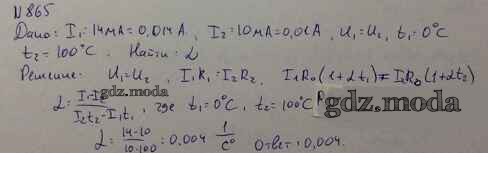 N 865
Дано: I₁=14мА=0,014А, I₂=10мА=0,01А, U₁=U₂, t₁=0°C
t₂=100°C. Найти: α
Решение: U₁=U₂, I₁R₁=I₂R₂, I₁R₀(1+αt₁)=I₂R₀(1+αt₂)
α=(I₁-I₂)/(I₂t₂-I₁t₁), где t₁=0°C, t₂=100°C gdz.moda
gdz.moda
α=(14-10)/(10·100)=0,004 1/C° Ответ: 0,004.